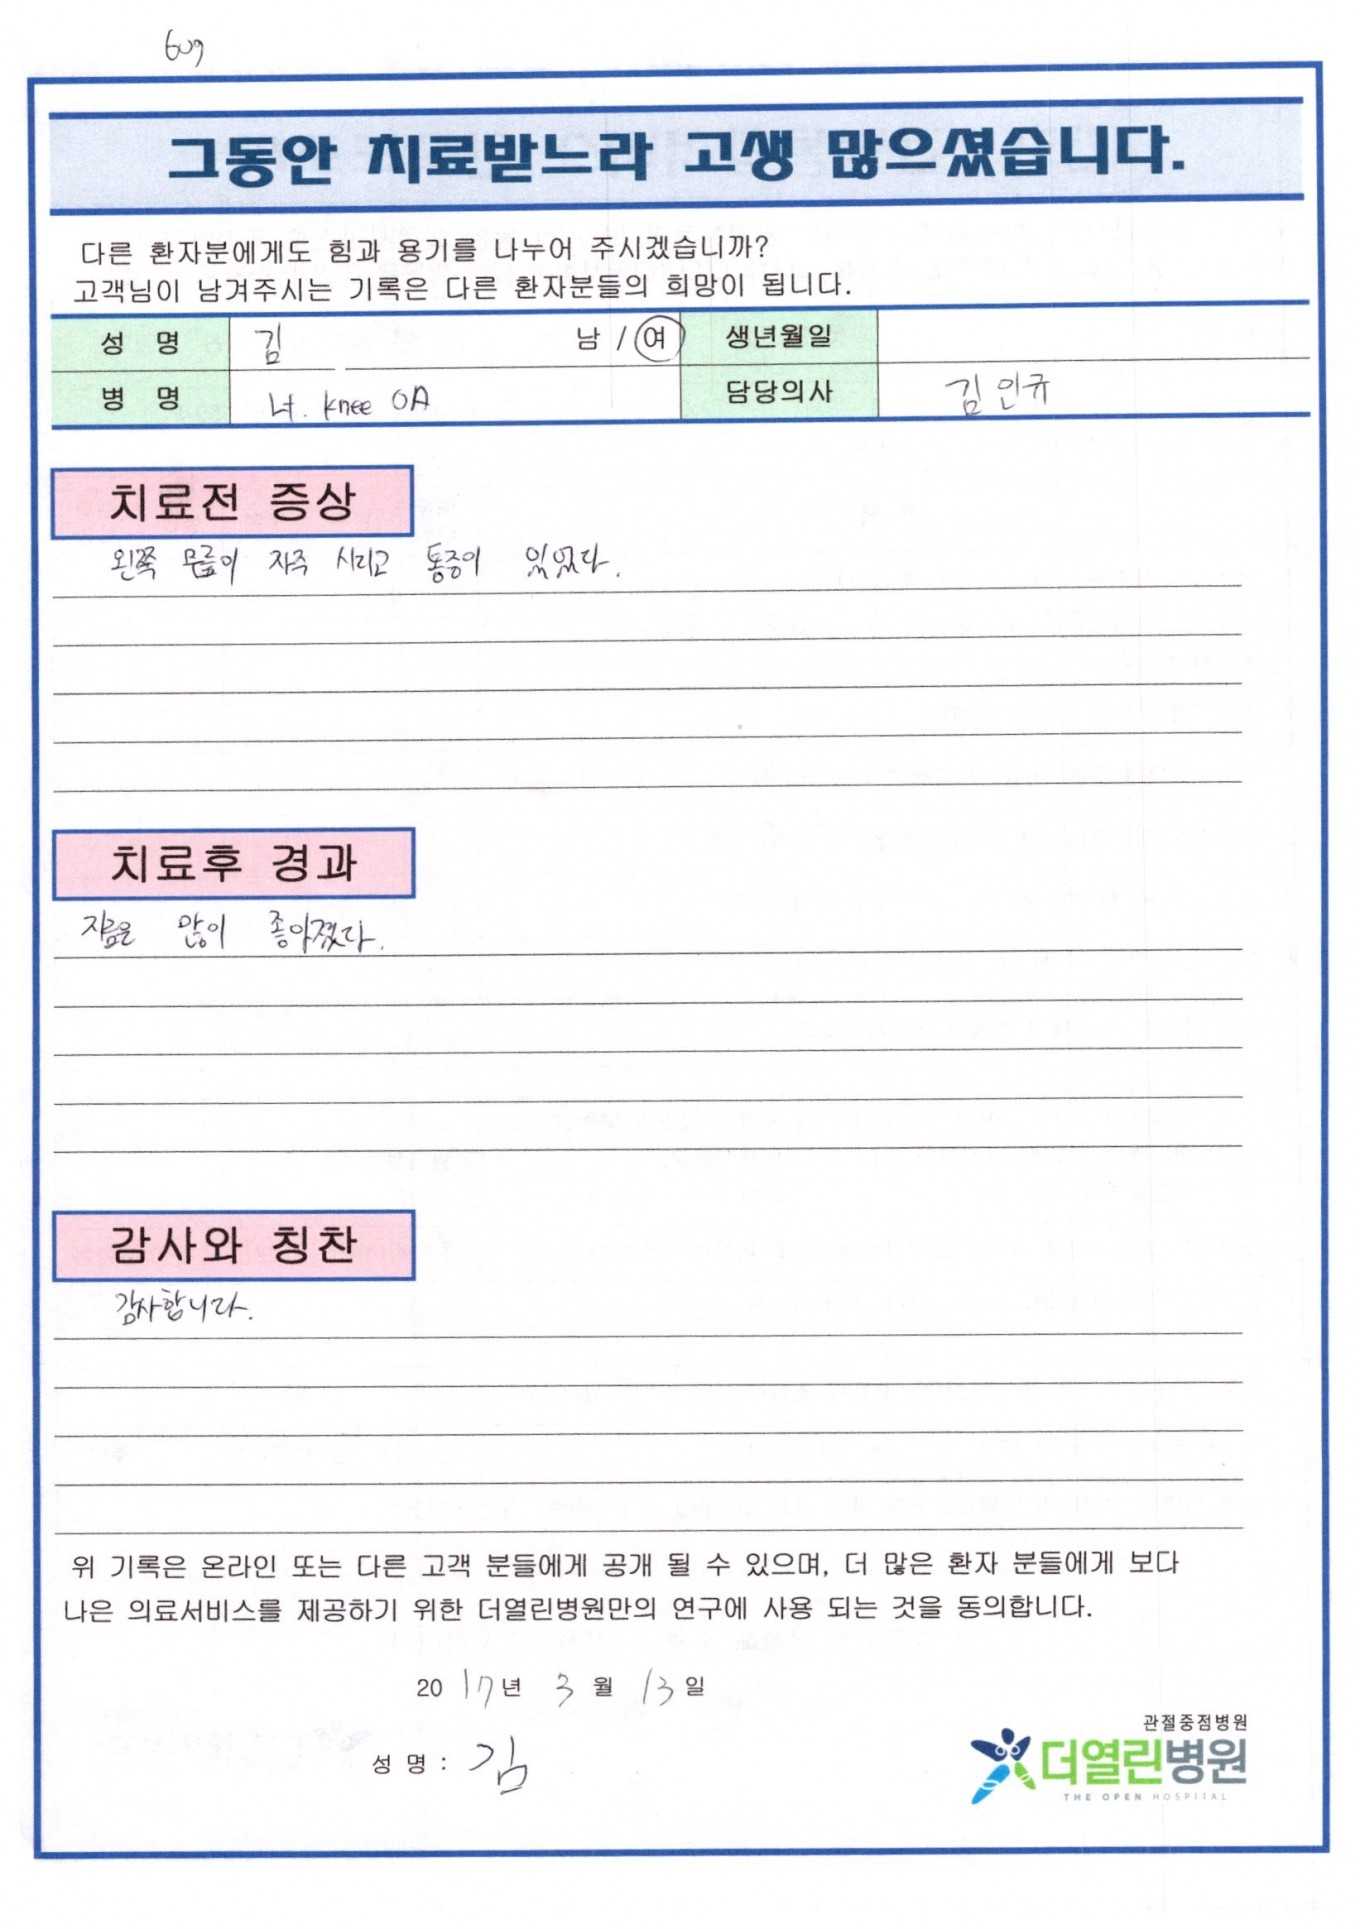 609
그동안 치료받느라 고생 많으셨습니다.
다른 환자분에게도 힘과 용기를 나누어 주시겠습니까?
고객님이 남겨주시는 기록은 다른 환자분들의 희망이 됩니다.
성 명 김 남 / 여 생년월일
병 명 Lt. knee OA 담당의사 김인규
치료전 증상
왼쪽 무릎이 자주 시리고 통증이 있었다.
치료후 경과
지금은 많이 좋아졌다.
감사와 칭찬
감사합니다.
위 기록은 온라인 또는 다른 고객 분들에게 공개 될 수 있으며, 더 많은 환자 분들에게 보다
나은 의료서비스를 제공하기 위한 더열린병원만의 연구에 사용 되는 것을 동의합니다.
2017년 3월 13일
성 명 : 김
관절중점병원
더열린병원
THE OPEN HOSPITAL